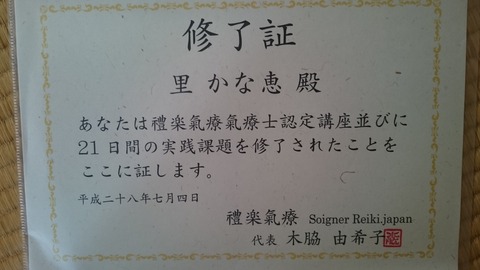 修了証
里 かな恵 殿
あなたは禮楽氣療氣療士認定講座並びに
21日間の実践課題を修了されたことを
ここに証します。
平成二十八年七月四日
禮楽氣療 Soigner Reiki.japan
代表 木脇 由希子